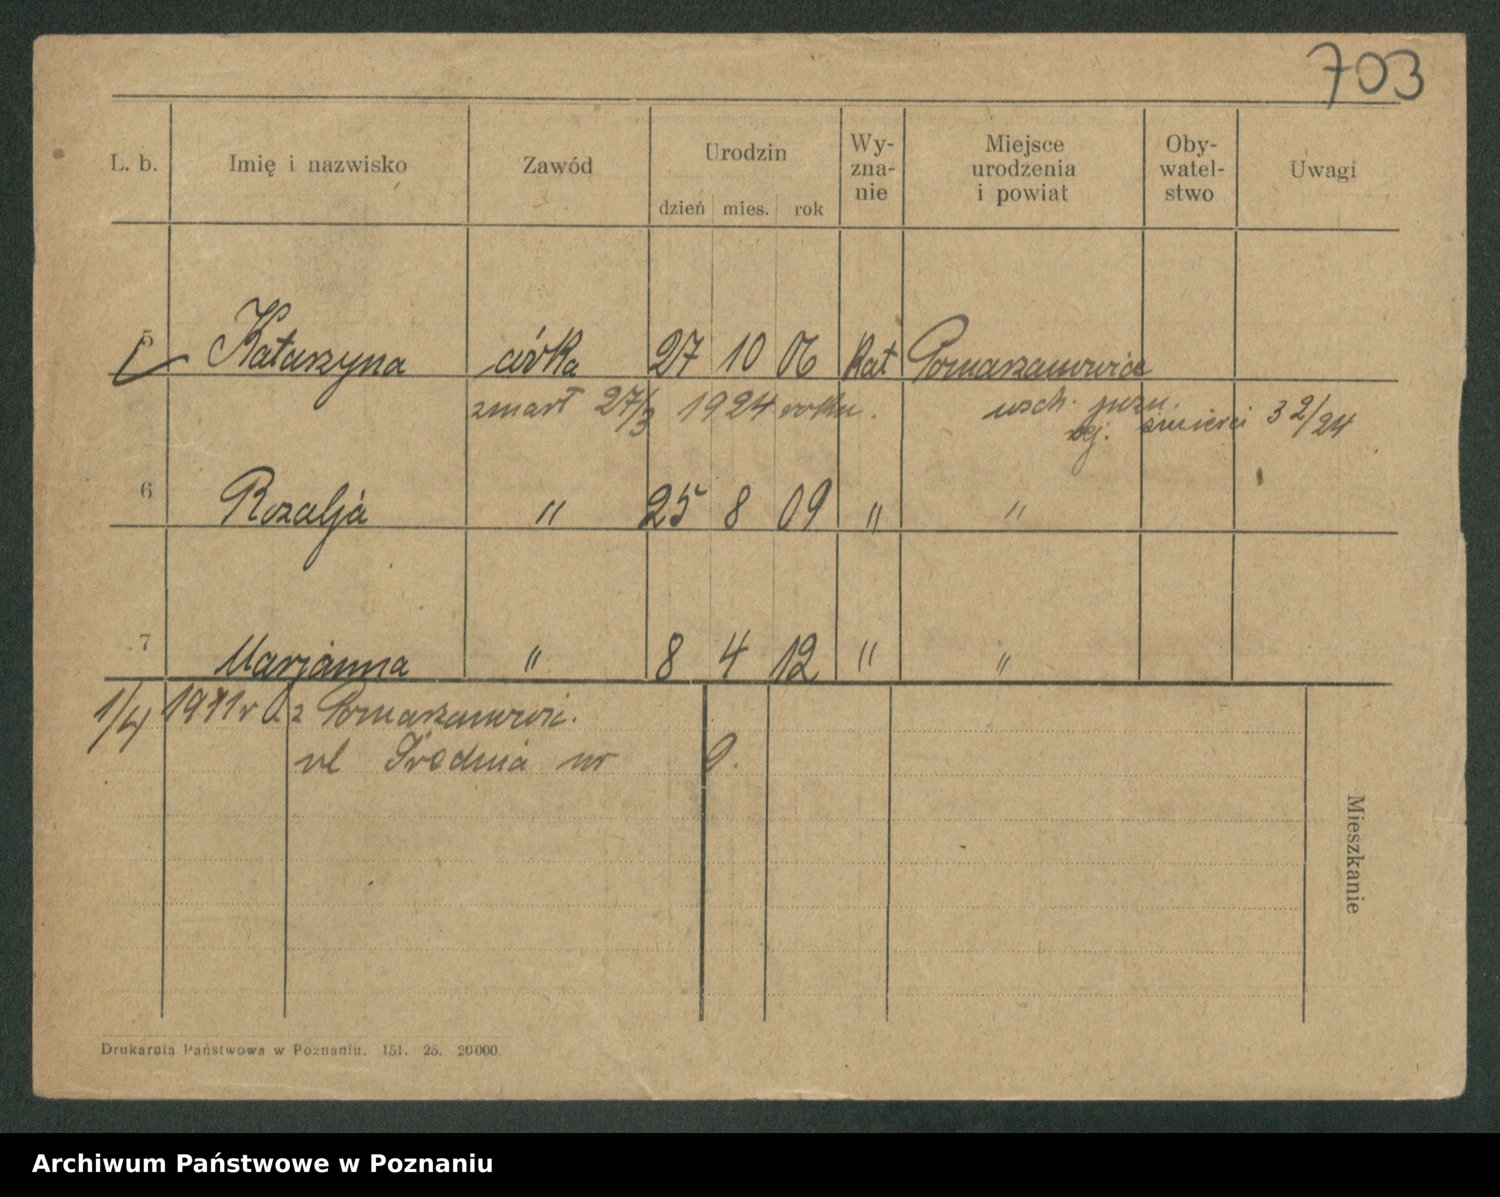 703
L. b. Imię i nazwisko Zawód Urodzin dzień mies. rok Wy-zna-nie Miejsce urodzenia i powiat Oby-watel-stwo Uwagi
5 Katarzyna córka 27 10 06 Kat Pomarzanowice
zmarł 27/3 1924 roku. wsch. pozn.
rej. śmierci 32/24
6 Rozalja " 25 8 09 " "
7 Marjanna " 8 4 12 " "
1/4 1911 r z Pomarzanowic.
ul Średnia nr 9.
Mieszkanie
Drukarnia Państwowa w Poznaniu. 151. 25. 20000.
Archiwum Państwowe w Poznaniu